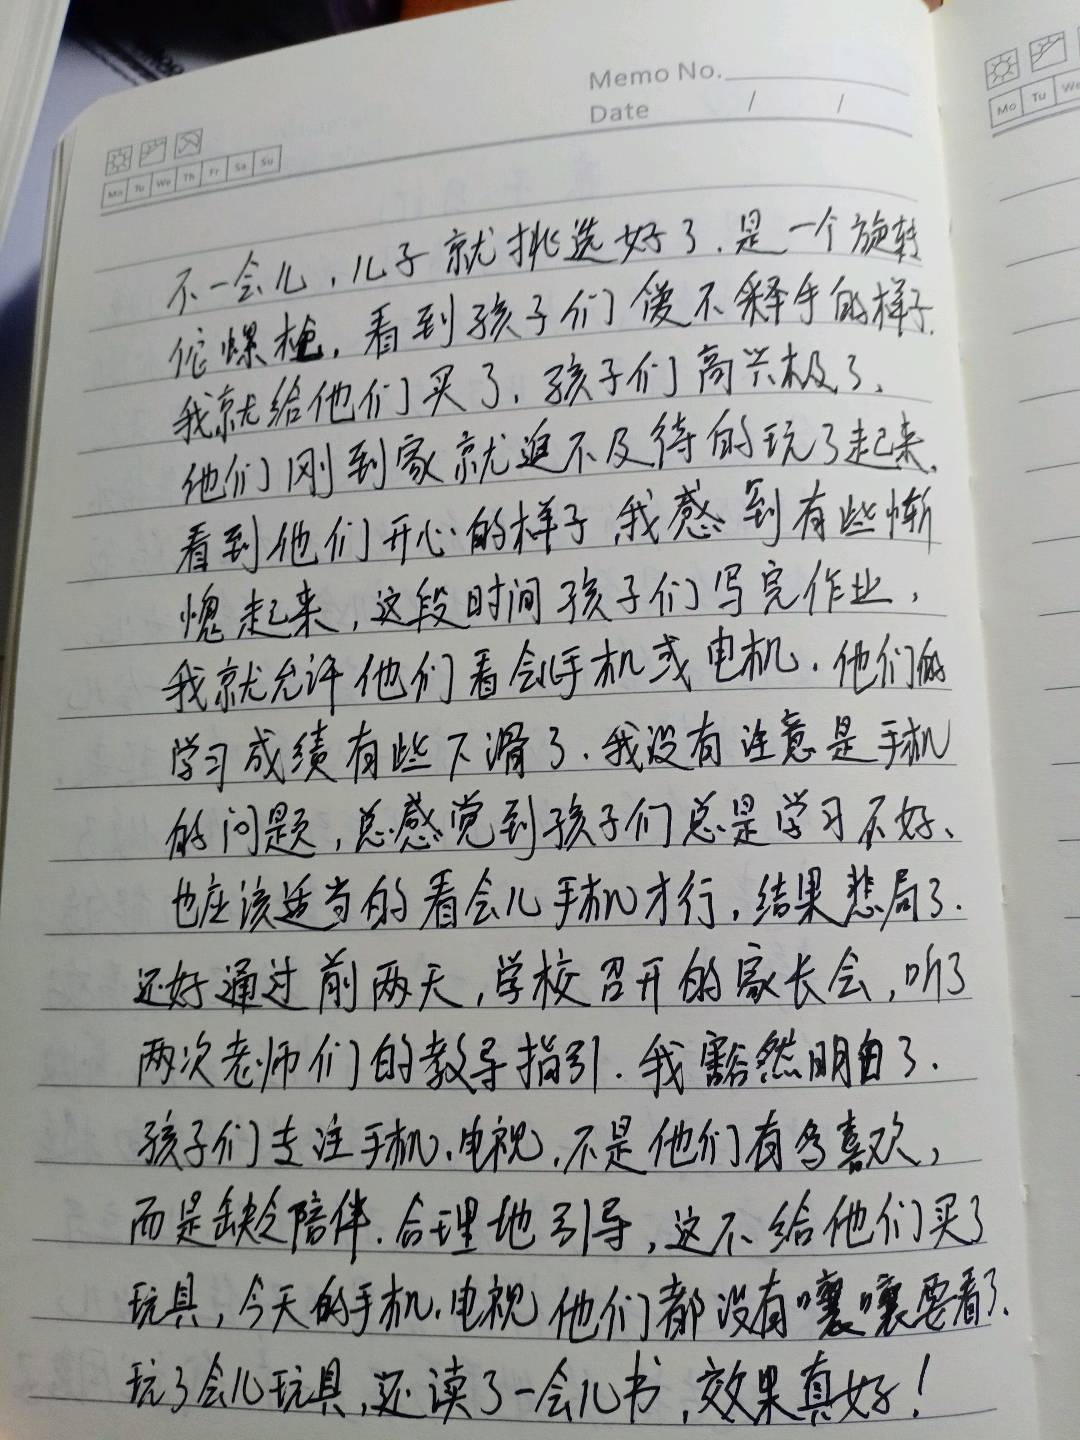 Memo No.
Date / /
Mo Tu We Th Fr Sa Su
Mo Tu We
不一会儿，儿子就挑选好了，是一个旋转
陀螺枪，看到孩子们爱不释手的样子，
我就给他们买了，孩子们高兴极了、
他们刚到家就迫不及待的玩了起来，
看到他们开心的样子，我感到有些惭
愧起来，这段时间孩子们写完作业，
我就允许他们看会儿手机或电机．他们的
学习成绩有些下滑了．我没有注意是手机
的问题，总感觉到孩子们总是学习不好、
也应该适当的看会儿手机才行，结果悲局了．
还好通过前两天，学校召开的家长会，听了
两次老师们的教导指引．我豁然明白了．
孩子们专注手机、电视，不是他们有多喜欢，
而是缺乏陪伴．合理地引导，这不给他们买了
玩具，今天的手机、电视他们都没有嚷嚷要看了．
玩了会儿玩具，还读了一会儿书，效果真好！